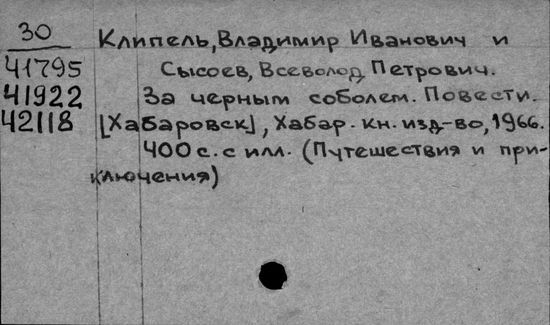 30 Клипель, Владимир Иванович и
41795 Сысоев, Всеволод Петрович.
41922 За черным соболем. Повести.
42118 [Хабаровск], Хабар. кн. изд-во, 1966.
400 с. с илл. (Путешествия и при-
ключения)